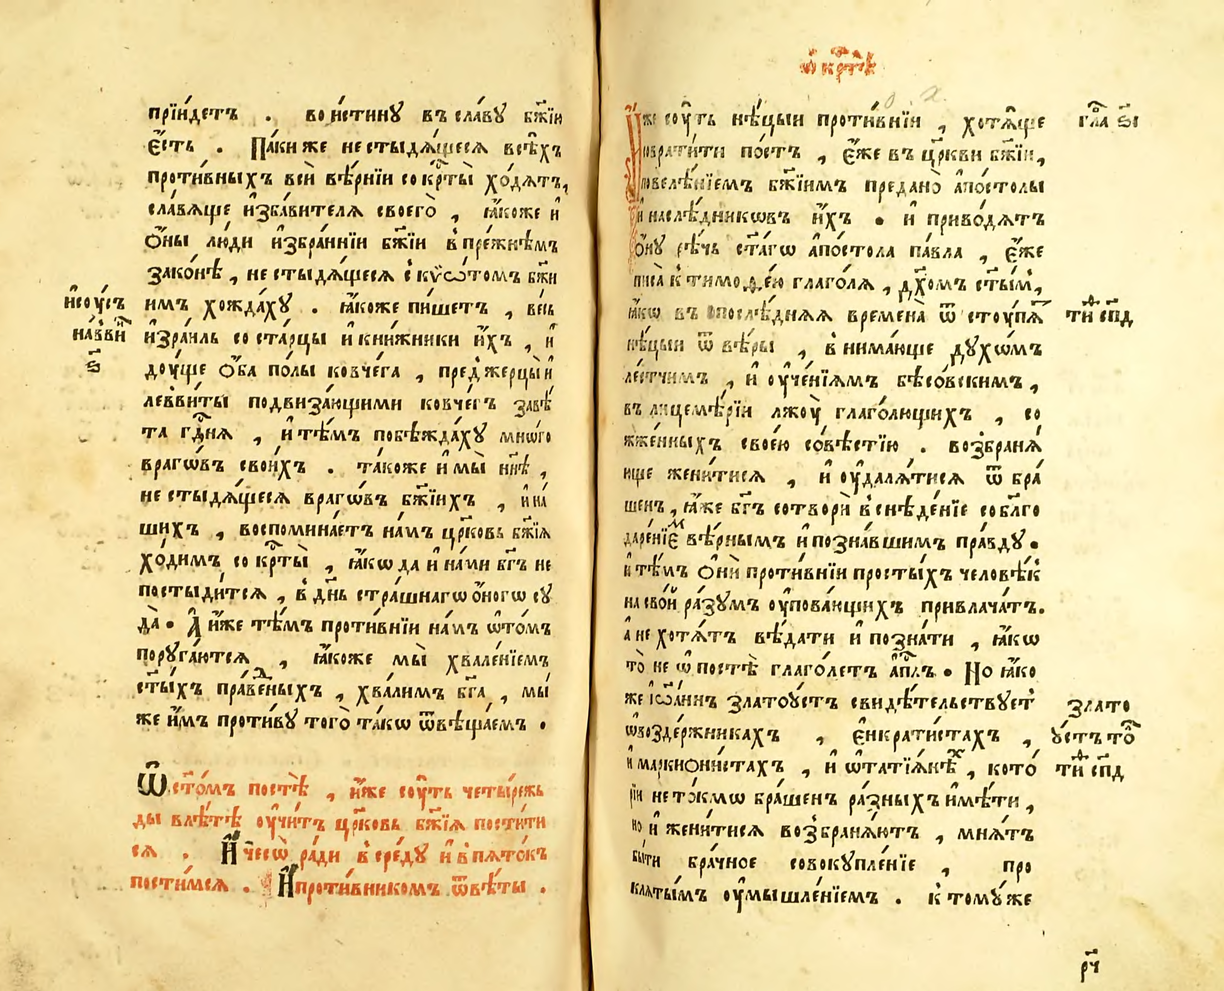 прїи́детъ . вои́стинꙋ въ сла́вꙋ бж҃їи
є҆́сть . Па́ки же не стыдѧ́щесѧ всѣ́хъ
проти́вныхъ всѝ вѣ́рнїи со крⷭ҇ты̀ хо́дѧтъ,
сла́вѧще и҆зба́вителѧ своего̀ , ꙗ҆́коже и҆
ѻ҆́ны лю́ди и҆збра́ннїи бж҃їи в пре́жнѣмъ
зако́нѣ , не стыдѧ́щесѧ с кѵ҆ѡ́томъ бж҃и
и҆сꙋ́съ
на́ввиⷩ҇
ѕ҃
имъ хожда́хꙋ . ꙗ҆́коже пи́шетъ , ве́сь
и҆зра́иль со ста́рцы и҆ кни́жники и҆́хъ , и҆
дꙋ́ще ѻ҆́ба по́лы ковче́га , пред̾ жерцы̀ и҆
левви́ты подвиза́ющими ковче́гъ завѣ́
та гдⷭ҇нѧ , и҆ тѣ́мъ побѣжда́хꙋ мно́го
враго́въ свои́хъ . та́коже и҆ мы̀ нн҃ѣ ,
не стыдѧ́щесѧ враго́въ бж҃їихъ , и҆ на́
шихъ , воспомина́етъ на́мъ цр҃ковь бж҃їѧ
хо́димъ со крⷭ҇ты̀ , ꙗ҆́кѡ да и҆ на́ми бг҃ъ не
постыди́тсѧ , в дн҃ь стра́шнагѡ ѻ҆́ногѡ сꙋ
да̀ . А҆ и҆́же тѣ́мъ проти́внїи на́мъ ѡ҆ то́мъ
порꙋга́ютсѧ , ꙗ҆́коже мы̀ хвале́нїемъ
ст҃ы́хъ пра́веⷣныхъ , хва́лимъ бг҃а , мы́
же и҆́мъ проти́вꙋ того̀ та́кѡ ѿвѣщае́мъ .
Ѿ ст҃о́мъ постѣ̀ , и҆́же сꙋ́ть четы́режь
ды в лѣ́тѣ ᲂу҆чи́тъ цр҃ковь бж҃їѧ пости́ти
сѧ . И҆ чесѡ̀ ра́ди в сре́дꙋ и҆ в пѧто́къ
пости́мсѧ . И҆ проти́вникомъ ѿвѣ́ты .
ѡ҆ крⷭ҇тѣ̀
И҆́же сꙋ́ть нѣ́цыи проти́внїи , хотѧ́ще
гл҃а ѕ҃і
ѿврати́ти по́стъ , є҆́же в цр҃кви бж҃їи,
повелѣ́нїемъ бж҃їимъ предано̀ а҆по́столы
и҆ наслѣ́дникѡвъ и҆́хъ . и҆ приво́дѧтъ
ѻ҆́нꙋ рѣ́чь ст҃а́гѡ а҆по́стола па́вла , є҆́же
писа̀ к тимоѳе́ю глаго́лѧ , дх҃омъ ст҃ы́м,
ꙗ҆́кѡ въ послѣ́днѧѧ времена̀ ѿстꙋ́пѧⷮ
тиⷨ҇ сп҃д
нѣ́цыи ѿ вѣ́ры , внима́юще дꙋ́хѡмъ
ле́стчимъ , и҆ ᲂу҆че́нїѧмъ бѣсо́вскимъ ,
въ лицемѣ́рїи лжꙋ̀ глаго́лющихъ , со
жже́нныхъ свое́ю со́вѣстїю . возбранѧ́
юще жени́тисѧ , и҆ ᲂу҆далѧ́тисѧ ѿ бра́
шенъ , ꙗ҆́же бг҃ъ сотворѝ в снѣде́нїе со благо
даре́нїеⷨ вѣ́рнымъ и҆ позна́вшимъ пра́вдꙋ .
и҆ тѣ́мъ ѻ҆нѝ проти́внїи просты́хъ человѣ́к
на сво́й ра́зꙋмъ ᲂу҆пова́ющихъ привлача́тъ.
а҆ не хотѧ́тъ вѣ́дати и҆ позна́ти , ꙗ҆́кѡ
то̀ не ѡ҆ постѣ̀ глаго́летъ а҆пⷭ҇лъ . Но ꙗ҆́ко
же і҆ѡа́ннъ златоꙋ́стъ свидѣ́тельствꙋет
злато
ꙋ́стъ тоⷧ҇
ѡ҆ возде́ржникахъ , є҆нкрати́стахъ ,
и҆ маркиони́стахъ , и҆ ѡ҆ татїа́нѣⷯ , кото́
тиⷨ҇ сп҃д
рїи не то́кмѡ бра́шенъ ра́зныхъ и҆мѣ́ти ,
но и҆ жени́тисѧ возбранѧ́ютъ , мнѧ́тъ
бы́ти бра́чное совокꙋпле́нїе , про
клѧ́тымъ ᲂу҆мышле́нїемъ . к томꙋ́же
рч҃